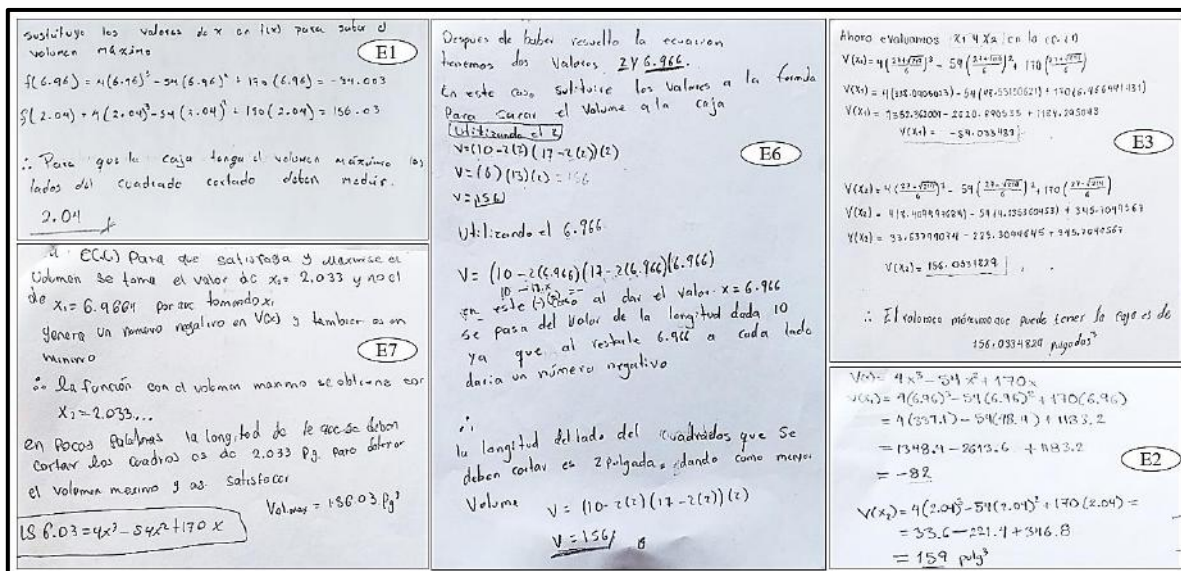 sustituyo los valores de x en f(x) para saber el
volumen máximo
E1
f(6.96) = 4(6.96)³ - 54(6.96)² + 170(6.96) = -34.003
f(2.04) = 4(2.04)³ - 54(2.04)² + 170(2.04) = 156.03
∴ Para que la caja tenga el volumen máximo los
lados del cuadrado cortado deben medir.
2.04
E(C) Para que satisfaga y maximise el
Volumen se toma el valor de x₂= 2.033 y no el
de x₁= 6.9664 porque tomando x₁
genera un numero negativo en V(x) y tambien es un
minimo
E7
∴ la función con el volumen maximo se obtiene con
X₂=2.033...
en pocas palabras la longitud de le que se deben
cortar los cuadros es de 2.033 Pg. para obtener
el volumen maximo y asi satisfacer
Vol.max = 156.03 Pg³
156.03 = 4x³ - 54x² + 170 x
Despues de haber resuelto la ecuacion
tenemos dos Valores 2 y 6.966.
En este caso sutituire los valores a la formula
Para sacar el Volume a la caja
Utilizando el 2
E6
V=(10-2(2)(17-2(2))(2)
V=(6)(13)(2) = 156
V=156
Utilizando el 6.966
V= (10-2(6.966)(17-2(6.966)(6.966)
en este caso al dar el valor x = 6.966
se pasa del valor de la longitud dada 10
ya que al restarle 6.966 a cada lado
daria un número negativo
∴
la longitud del lado del cuadrados que se
deben cortar es 2 pulgada, dando como mayor
Volume V= (10-2(2)(17-2(2))(2)
V=156
Ahora evaluamos X₁ y X₂ en la
V(x₁) = 4(27+√214/6)³ - 54(27+√214/6)² + 170(27+√214/6)
V(x₁) = -54.033483
E3
V(x₂) = 4(27-√214/6)³ - 54(27-√214/6)² + 170(27-√214/6)
V(x₂) = 156.0334829
∴ El volumen máximo que puede tener la caja es de
156.0334829 pulgadas³
V(x)= 4x³ - 54x² + 170x
V(x₁) = 4(6.96)³ - 54(6.96)² + 170(6.96)
= 4(337.1) - 54(48.4) + 1183.2
= 1348.4 - 2613.6 + 1183.2
E2
= -82
V(x₂) = 4(2.04)³ - 54(2.04)² + 170(2.04) =
= 33.6 - 221.4 + 346.8
= 159 pulg³